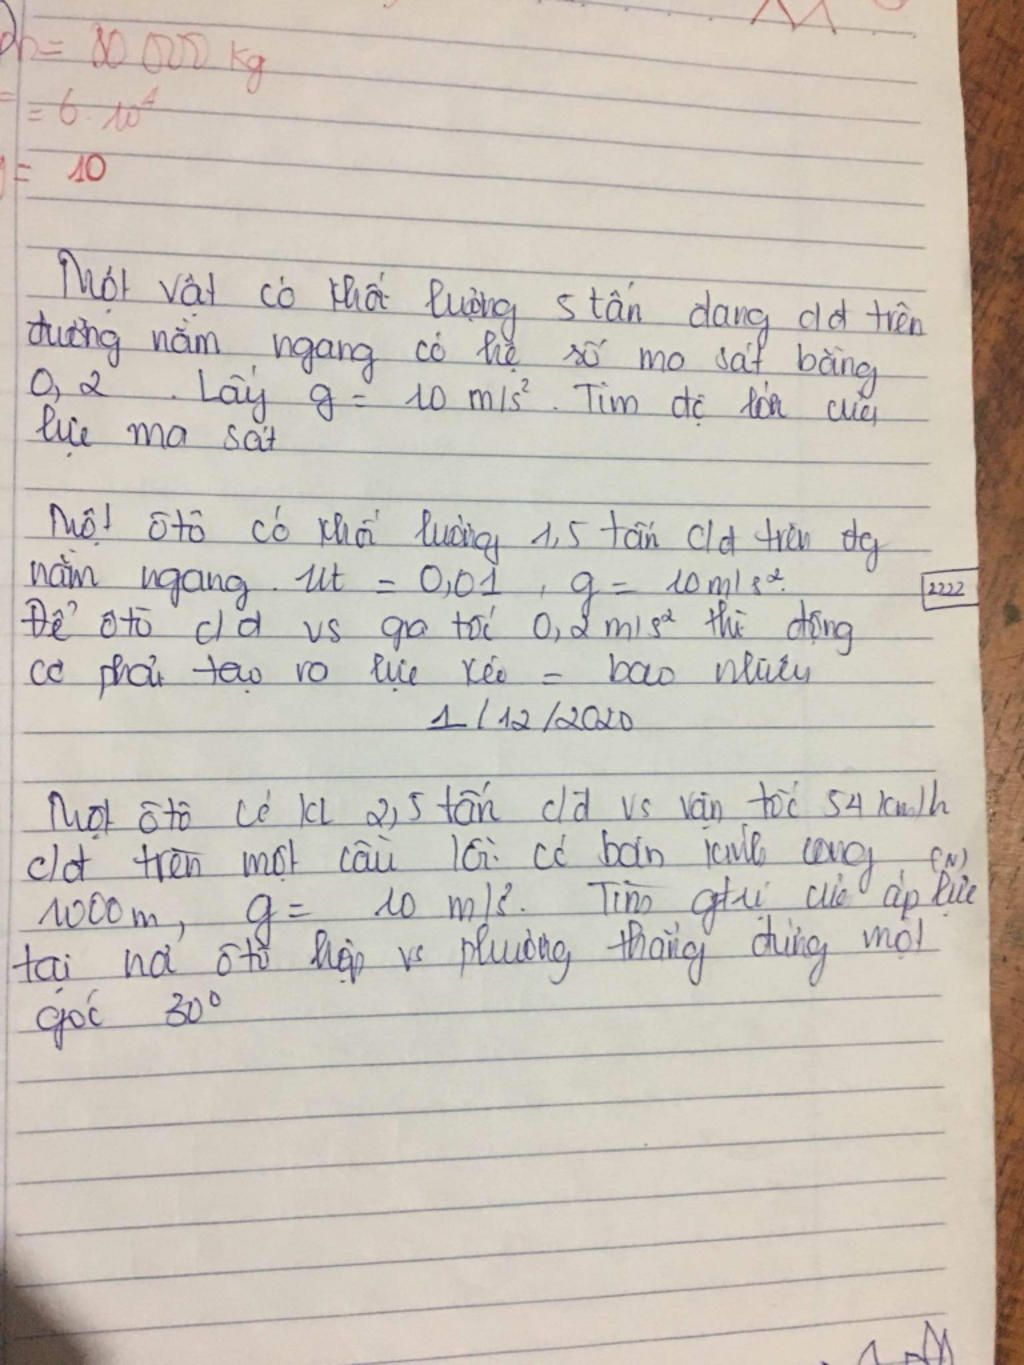 = 80 000 kg
= 6. 10⁴
= 10
Một vật có khối lượng 5 tấn đang c/đ trên
đường nằm ngang có hệ số ma sát bằng
0,2. Lấy g = 10 m/s². Tìm độ lớn của
lực ma sát
Một ôtô có khối lượng 1,5 tấn c/đ trên đg
nằm ngang. Ut = 0,01, g = 10m/s².
2222
Để ôtô c/đ vs gia tốc 0,2m/s² thì động
cơ phải tạo ra lực kéo = bao nhiêu
1/12/2020
Một ôtô có kl 2,5 tấn c/đ vs vận tốc 54 km/h
c/đ trên một cầu lồi có bán kính cong (N)
1000m, g = 10 m/s². Tìm gtrị của áp lực
tại nơi ôtô hợp vs phương thẳng đứng một
góc 30°